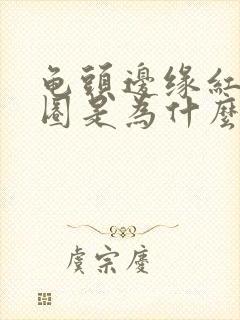 龟頭邊缘紅
圈是為什麼
虞宗慶